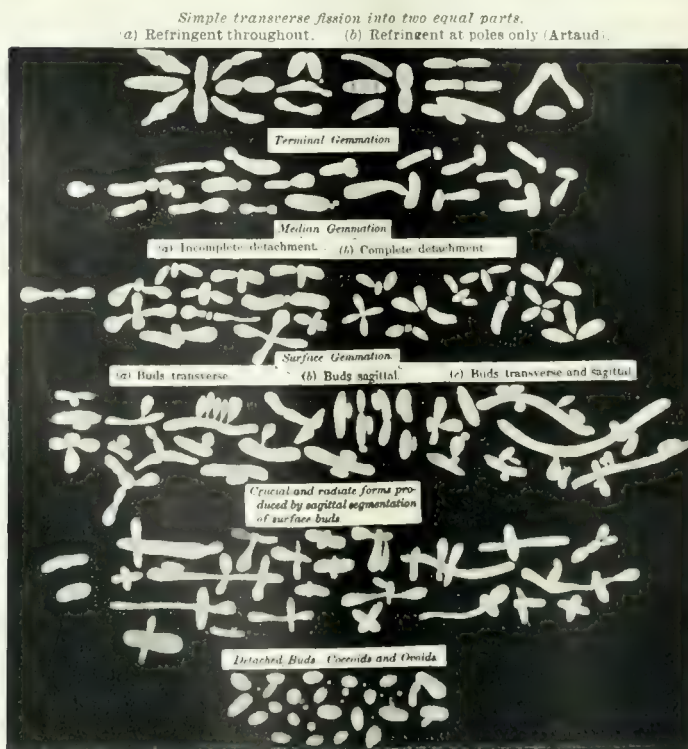 Simple transverse fission into two equal parts.
(a) Refringent throughout. (b) Refringent at poles only (Artaud).
Terminal Gemmation
Median Gemmation
(a) Incomplete detachment. (b) Complete detachment
Surface Gemmation
(a) Buds transverse. (b) Buds sagittal. (c) Buds transverse and sagittal
Crucial and radiate forms pro-
duced by sagittal segmentation
of surface buds
Detached Buds Coccoids and Ovoids